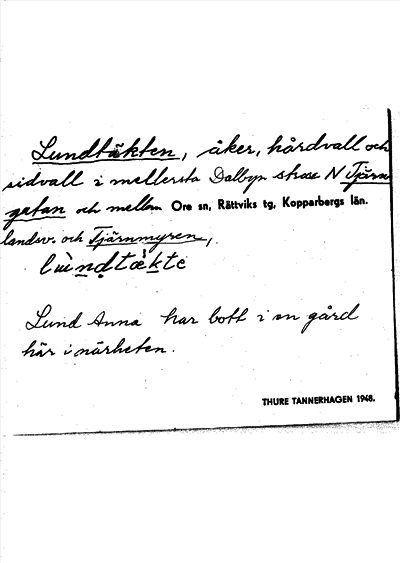 Lundtäkten, åker, hårdvall och
sidvall i mellersta Dalbyn strax N Tjärn
gatan och mellan Ore sn, Rättviks tg, Kopparbergs län.
landsv. och Tjärnmyren,
Lund Anna har bott i en gård
här i närheten.
THURE TANNERHAGEN 1948.